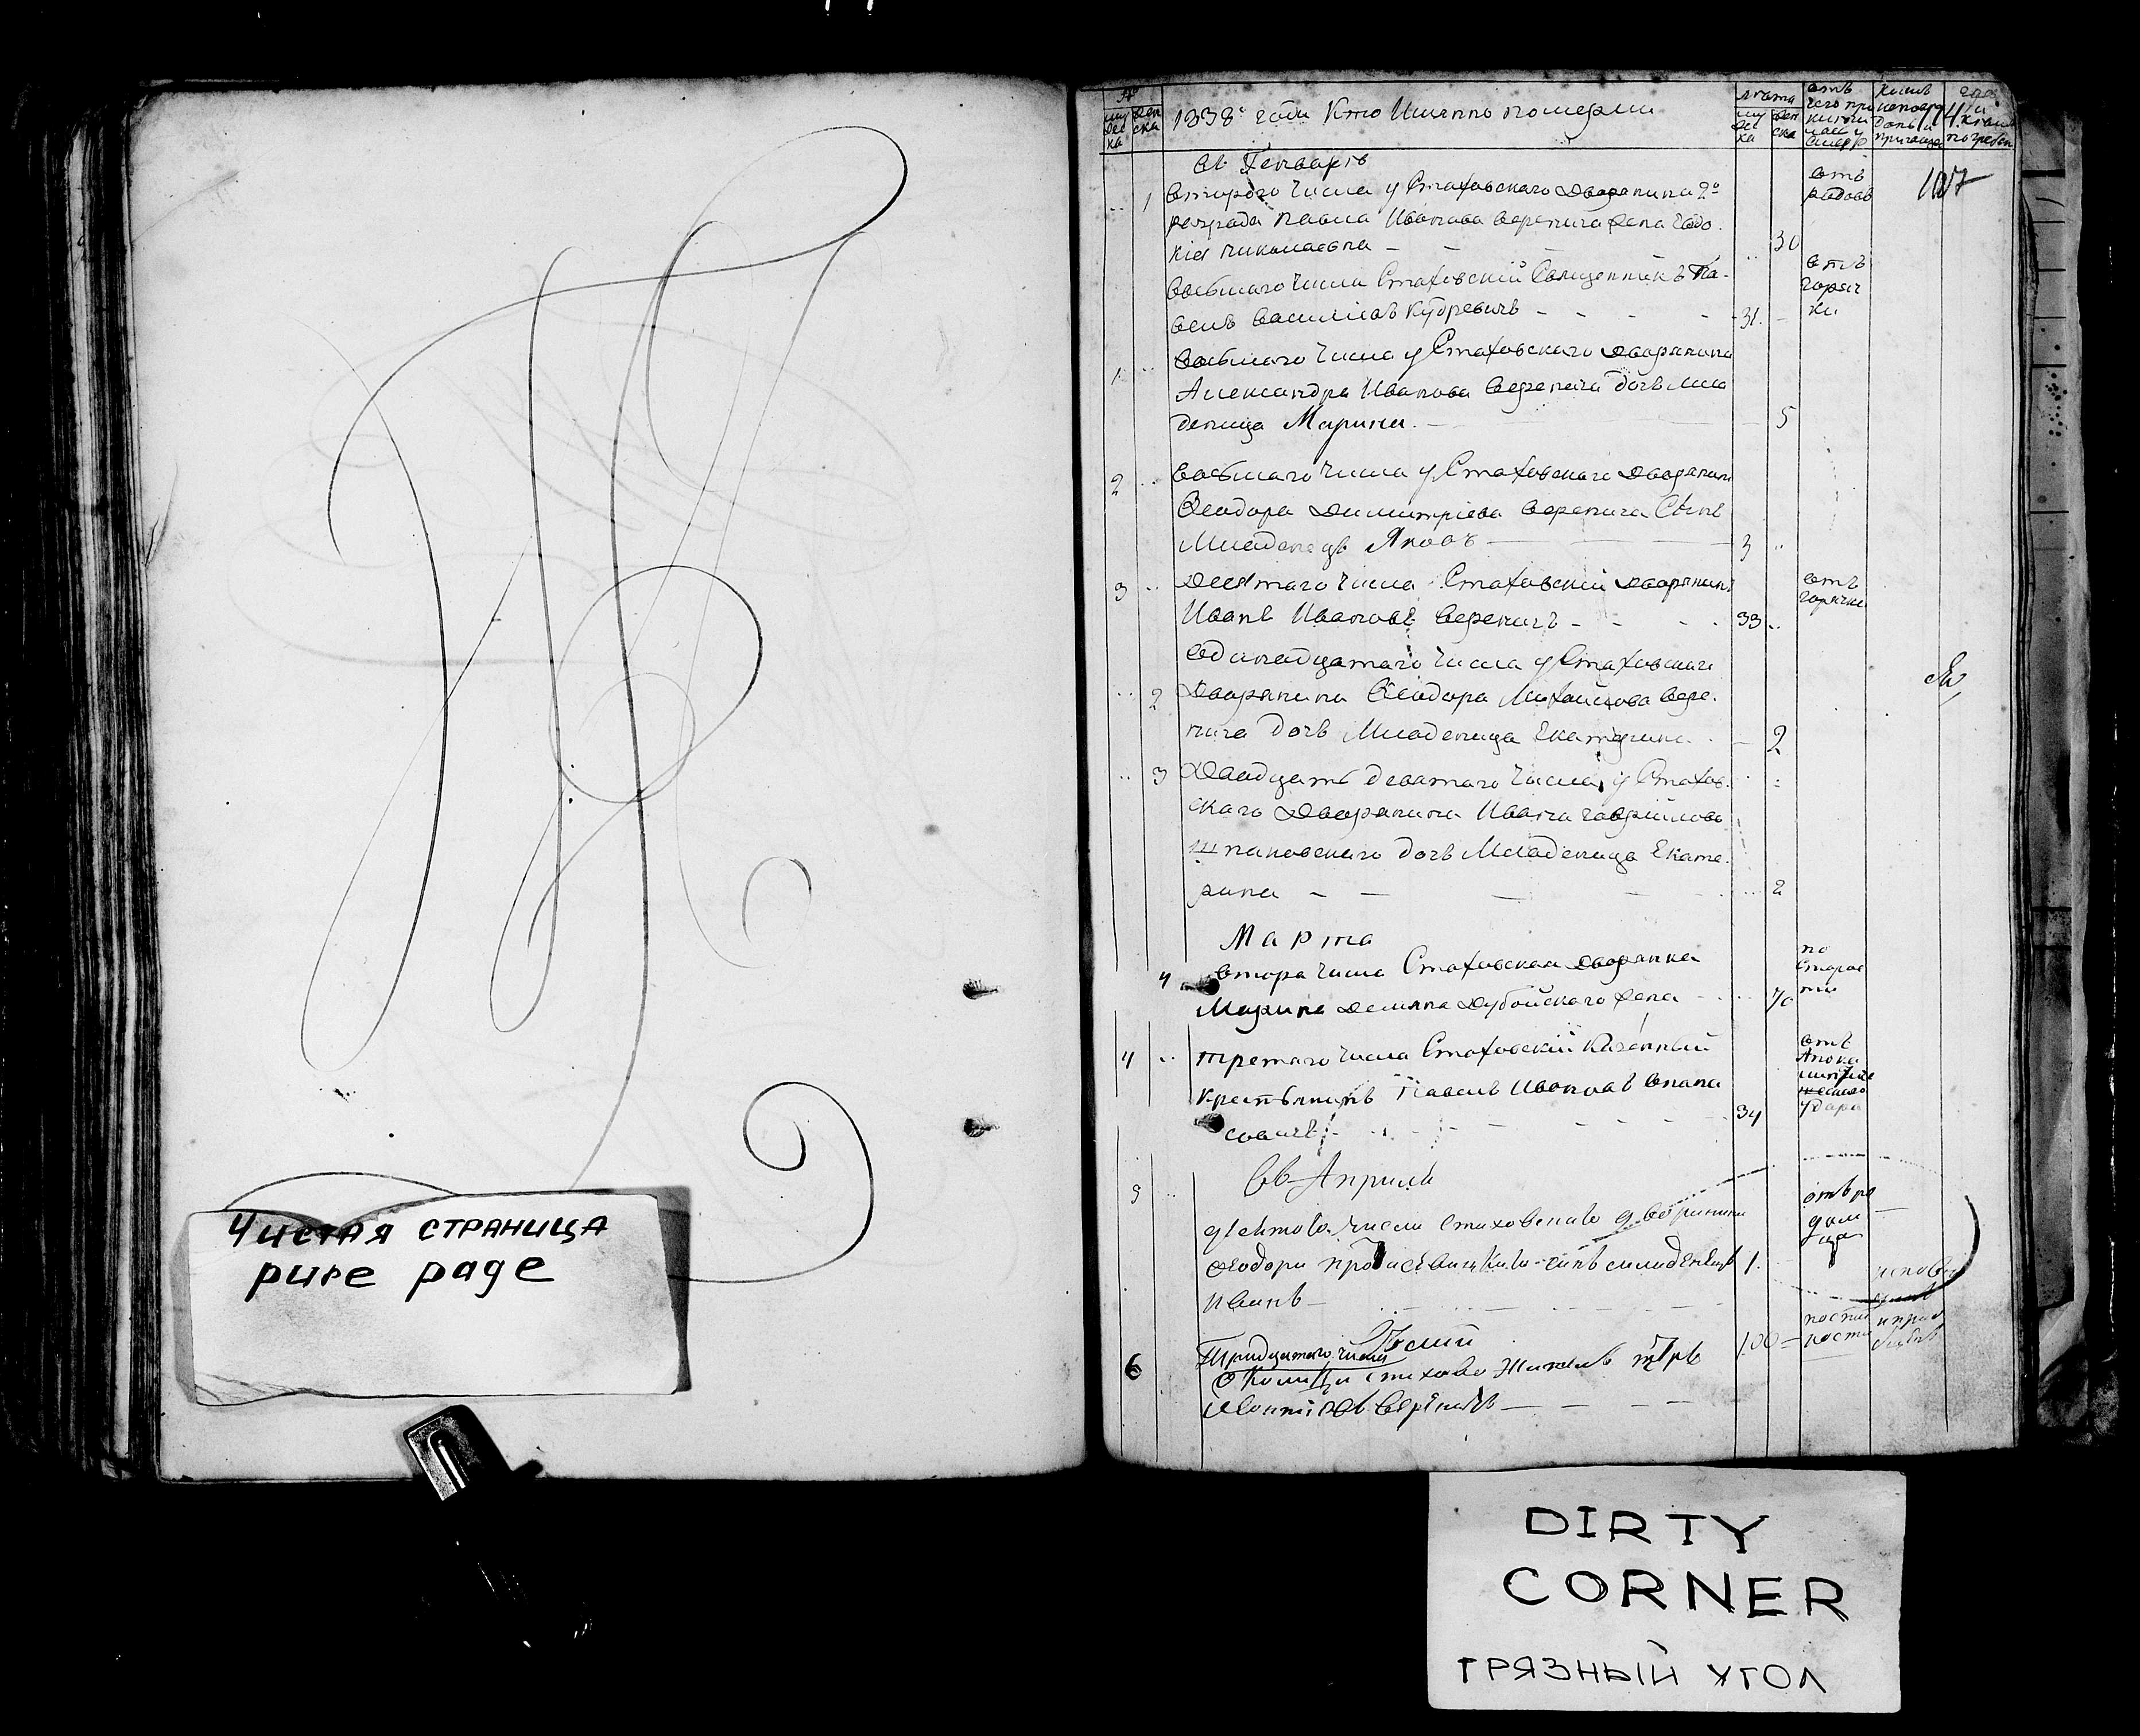 Чистая страница
pure page
№
муж
жен
ска
1838го года Кто Имянно померли
лѣта
отъ
чего при
кѣмъ
исповѣд
погребен
187
въ Генварѣ
1
втораго числа у Стаховскаго Дворянина 2го
разряда Павла Иванова Веренича жена Евдо
кія Николаевна
30
отъ
родовъ
восьмаго числа Стаховскій Священникъ Па-
велъ Василіевъ Кудревичъ
31
отъ
горяч
ки
1
восьмаго числа у Стаховскаго Дворянина
Александра Иванова Веренича дочь мла
деница Марина
5
2
восьмаго числа у Стаховскаго Дворянина
Ѳеодора Димитріева Веренича Сынъ
Младенецъ Яковъ
3
3
Десятаго числа Стаховскій Дворянинъ
Иванъ Ивановъ Вереничъ
33
отъ
горячки
2
Одинадцатаго числа у Стаховскаго
Дворянина Ѳеодора Михайлова Вере-
нича дочь Младеница Екатерина
2
3
Двадцать девятаго числа у Стахов-
скаго Дворянина Ивана Гаврілова
Шпановскаго дочь Младеница Екате-
рина
2
Марта
4
втора числа Стаховская Дворянка
Марина Демяна Дубойскаго жена
70
по
старос
ти
4
третаго числа Стаховскій Казенный
Крестьянинъ Павелъ Ивановъ
34
отъ
удара
Въ Априлѣ
5
числа Стаховскаго дворянина
Ѳеодора сынъ младенецъ
Иванъ
1.
отъ ро
дим
ца
Іюлій
6
Тридцатаго числа
Околицы Стахово Житель
Леонтіевъ Вереничъ
100
DIRTY
CORNER
ГРЯЗНЫЙ УГОЛ